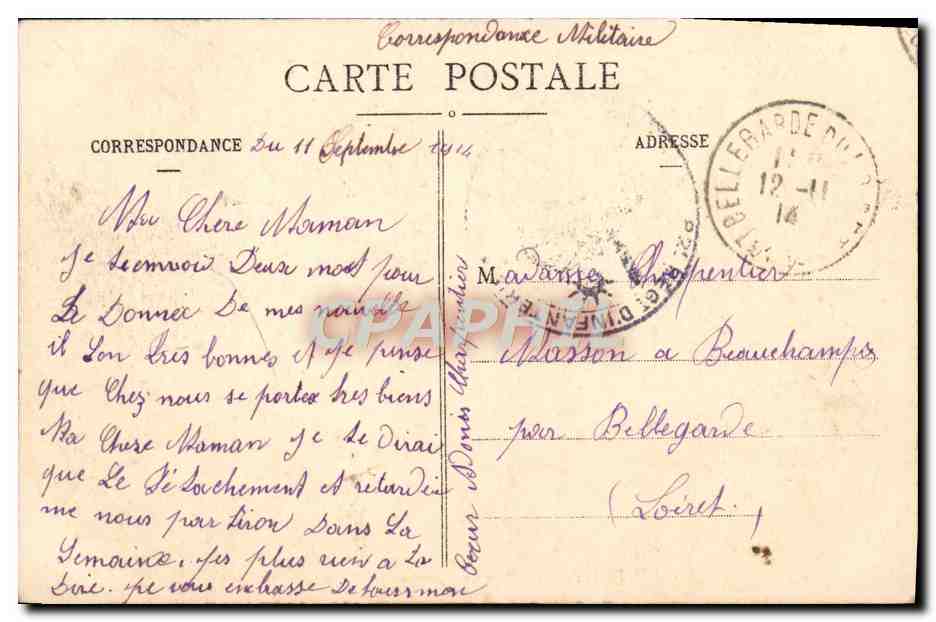 Correspondance Militaire
CARTE POSTALE
CORRESPONDANCE Du 11 Septembre 1914
Ma Chere Maman
Je t'envoie Deux mots pour
Le Donnee De mes nouvelle
il Son tres bonnes et Je pense
que Chez nous se portes tres biens
Ma Chere Maman Je te Dirai
que Le Détachement et retardée
me nous partiron Dans La
Semaine. Jes plus rien a La
Dire. Je vous embrasse De tous mon
Cœur Charpentier
ADRESSE
Madame Charpentier
Masson a Beauchamps
par Bellegarde
(Loiret,
BELLEGARDE DU LOIRET
12 -11
14
82e REGt D'INFANTERIE
CPAPHIL